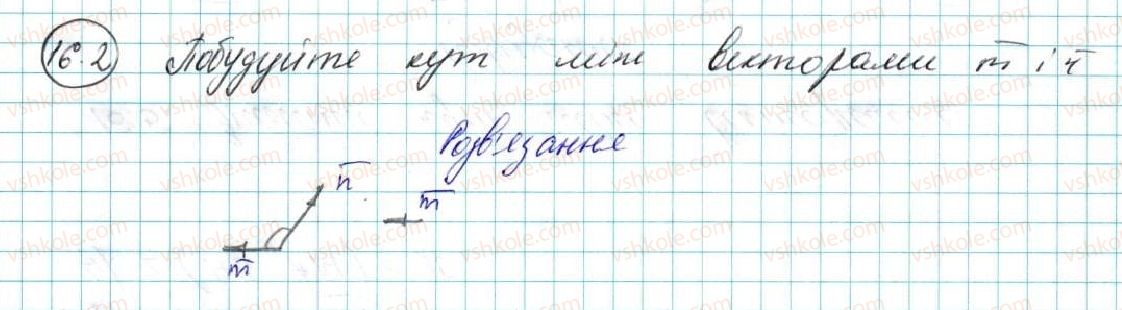 16.2 Побудуйте кут між векторами m̅ і n̅
Розв'язання
n̅
m̅
m̅